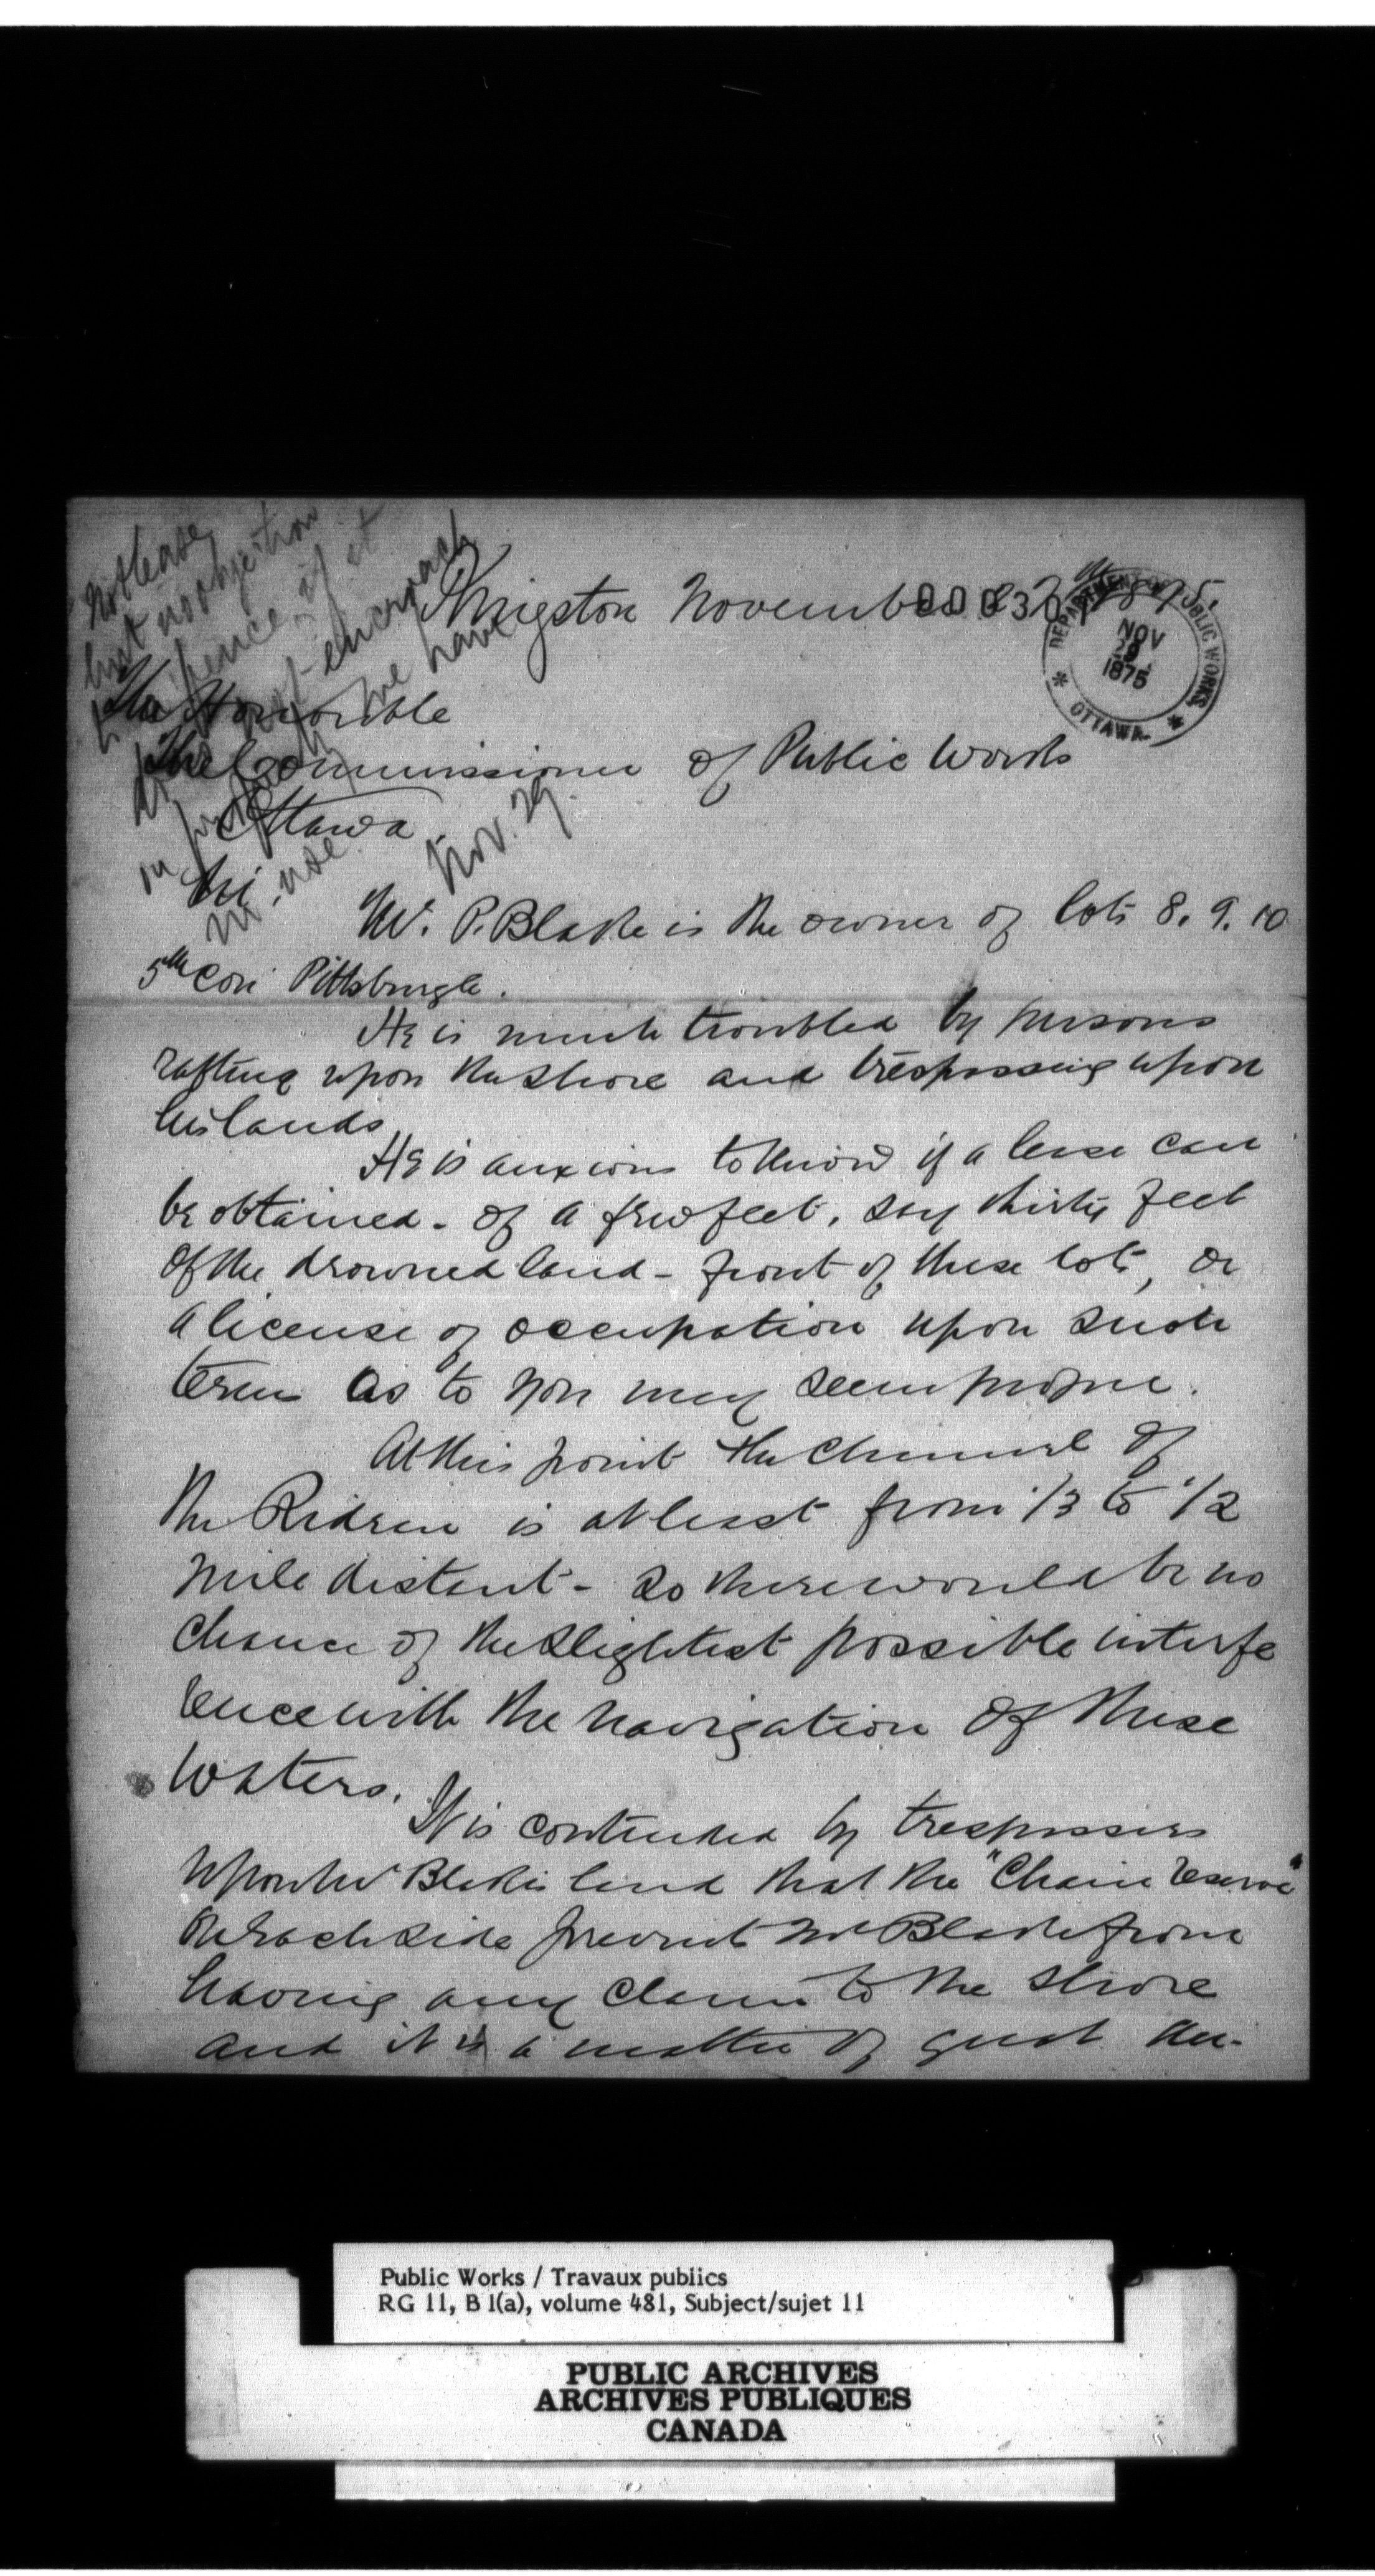 Not lease
but no objection
to fence, if it
does not encroach
on property we have
in use.
Nov. 29.
Kingston November 27th 1875.
00030
DEPARTMENT OF PUBLIC WORKS
NOV
29
1875
* OTTAWA *
The Honorable
The Commissioner of Public Works
Ottawa.
Sir,
Mr. P. Blake is the owner of lots 8. 9. 10
5th Con Pittsburgh.
He is much troubled by persons
rafting upon the shore and trespassing upon
his lands.
He is anxious to know if a lease can
be obtained - of a few feet, say thirty feet
of the drowned land - front of these lots, or
a license of occupation upon such
terms as to you may seem proper.
At this point the channel of
the Rideau is at least from 1/3 to 1/2
mile distant - so there would be no
chance of the slightest possible interfe
rence with the navigation of these
Waters.
It is contended by trespassers
upon Mr Blake's land that the "Chain reserve"
on each side prevents Mr Blake from
having any claim to the shore
and it is a matter of great an-
Public Works / Travaux publics
RG 11, B 1(a), volume 481, Subject/sujet 11
PUBLIC ARCHIVES
ARCHIVES PUBLIQUES
CANADA